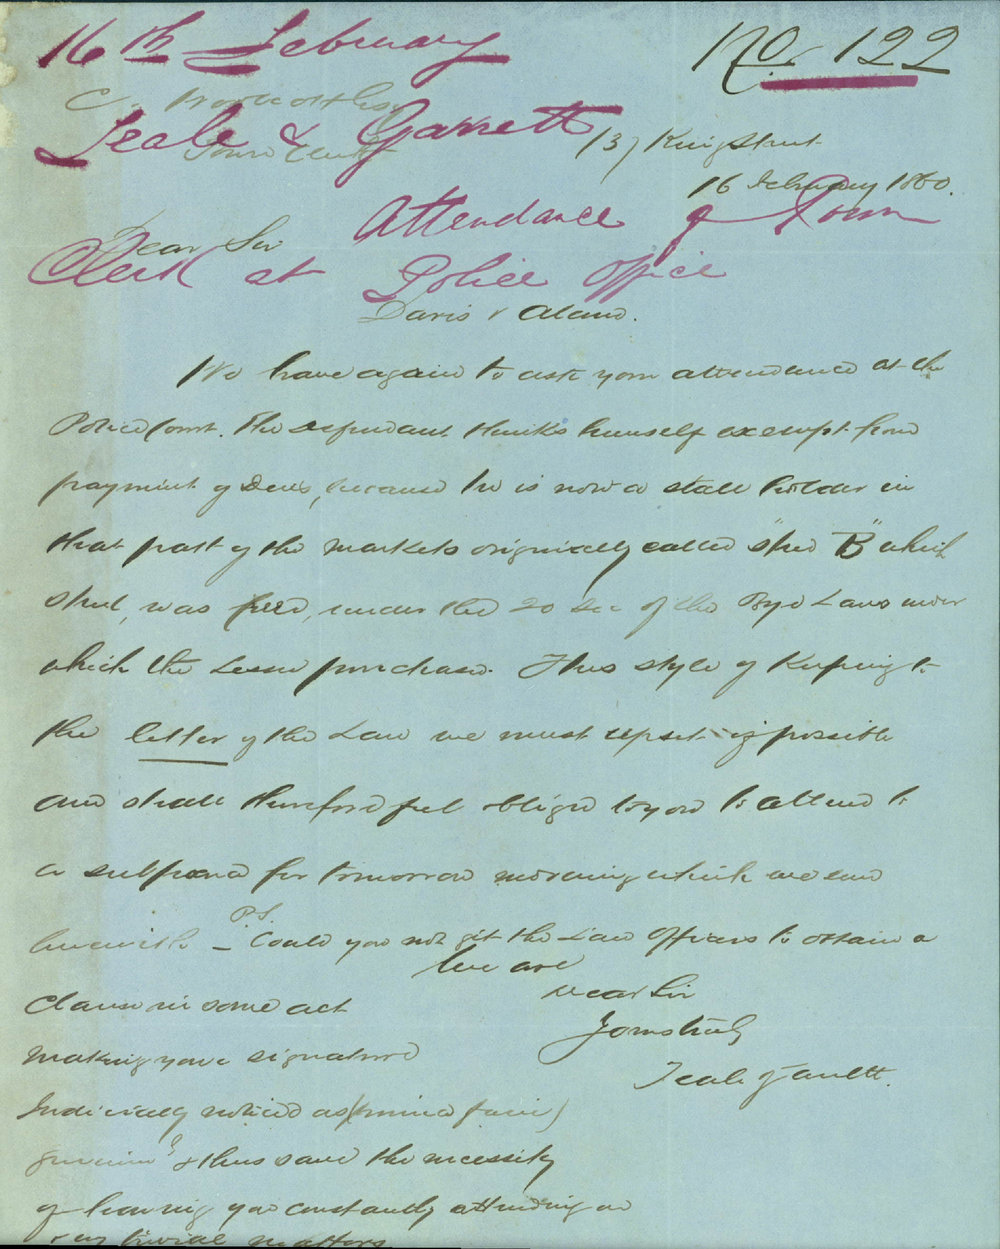 16th February
No. 122
C. Woolcott Esq
Teale & Garrett
Town Clerk
137 King Street
16 February 1860.
Attendance of Town
Dear Sir
Clerk at Police Office
Davis v
We have again to ask your attendance at the
Police Court. The defendant thinks himself exempt from
payment of Dues, because he is now a stall holder in
that part of the Markets originally called "shed B" which
shed, was free, under the 20 Sec of the Bye Laws under
which the Lessee purchased. This style of Keeping to
the letter of the Law we must upset if possible
and shall therefore feel obliged to you to attend to
a subpoena for tomorrow morning which we send
herewith –
P.S. Could you not get the Law Officers to obtain a
We are
Dear Sir
clause in some act
Yours truly
making your signature
Teale & Garrett.
Judicially noticed as (prima facie)
genuine & thus save the necessity
of having you constantly attending on
trivial matters